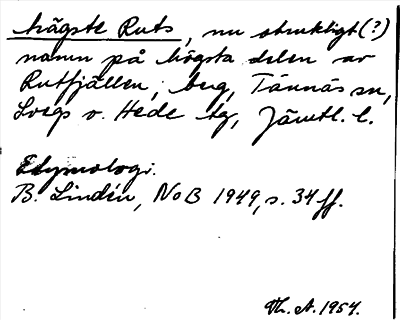 högste Ruts, nu obruktigt (?)
namn på högsta delen av
Rutfjällen, berg, Tännäs sn,
Svegs o. Hede tg, Jämtl. l.
Etymologi.
B. Lindén, NoB 1949, s. 34 ff.
Th. A. 1954.